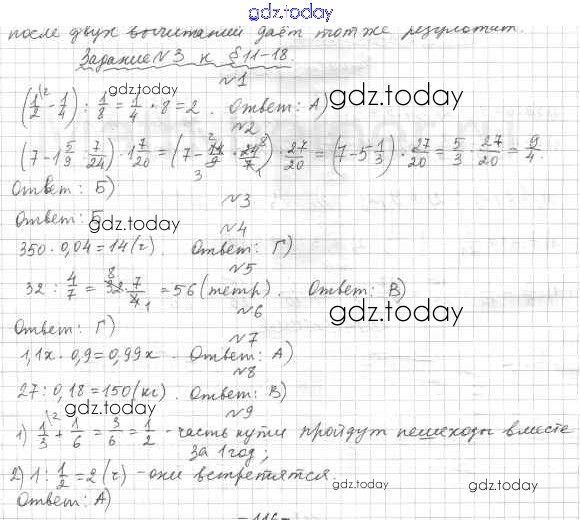 gdz.today
после двух вычитаний даёт тот же результат.
Задание N3 к §11-18.
N1
(1/2 - 1/4) : 1/8 = 1/4 · 8 = 2. Ответ: А)
gdz.today
N2
(7 - 1 5/9 : 7/24) · 1 7/20 = (7 - 14/9 · 24/7) · 27/20 = (7 - 5 1/3) · 27/20 = 5/3 · 27/20 = 9/4.
Ответ: Б)
N3
Ответ: Б
gdz.today
N4
350 · 0,04 = 14 (г). Ответ: Г)
gdz.today
N5
32 : 4/7 = 32 · 7/4 = 56 (тетр). Ответ: В)
N6
gdz.today
Ответ: Г)
N7
1,1x · 0,9 = 0,99x. Ответ: А)
N8
27 : 0,18 = 150 (кг). Ответ: В)
gdz.today
N9
1) 1/3 + 1/6 = 3/6 = 1/2 - часть пути пройдут пешеходы вместе
за 1 год;
2) 1 : 1/2 = 2 (г) - они встретятся.
gdz.today
Ответ: А)
gdz.today
-116-